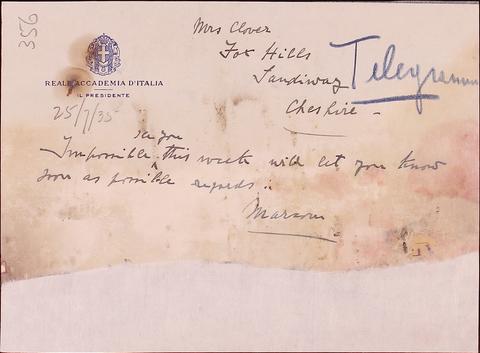 356
Mrs Clover
Fox Hills
Sandiway
Cheshire
Telegramma
REALE ACCADEMIA D'ITALIA
IL PRESIDENTE
25/7/35
see you
Impossible this week will let you know
soon as possible regards
Marconi